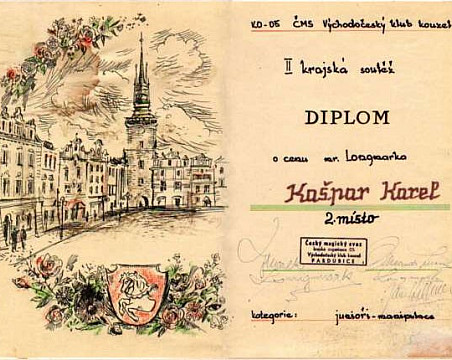 KO-05 ČMS Východočeský klub kouzel
II krajská soutěž
DIPLOM
o cenu mr. Longmarka
Kašpar Karel
2. místo
Český magický svaz
krajská organizace 05
Východočeský klub kouzel
PARDUBICE
kategorie: junioři-manipulace